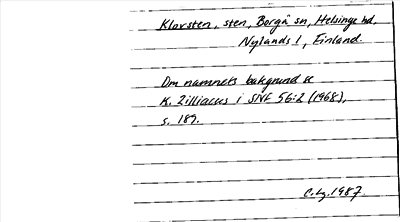 Klovsten, sten, Borgå sn, Helsinge hd,
Nylands l, Finland.
Om namnets bakgrund se
K. Zilliacus i SNF 56:2 (1968),
s. 189.
C.Lg. 1987.